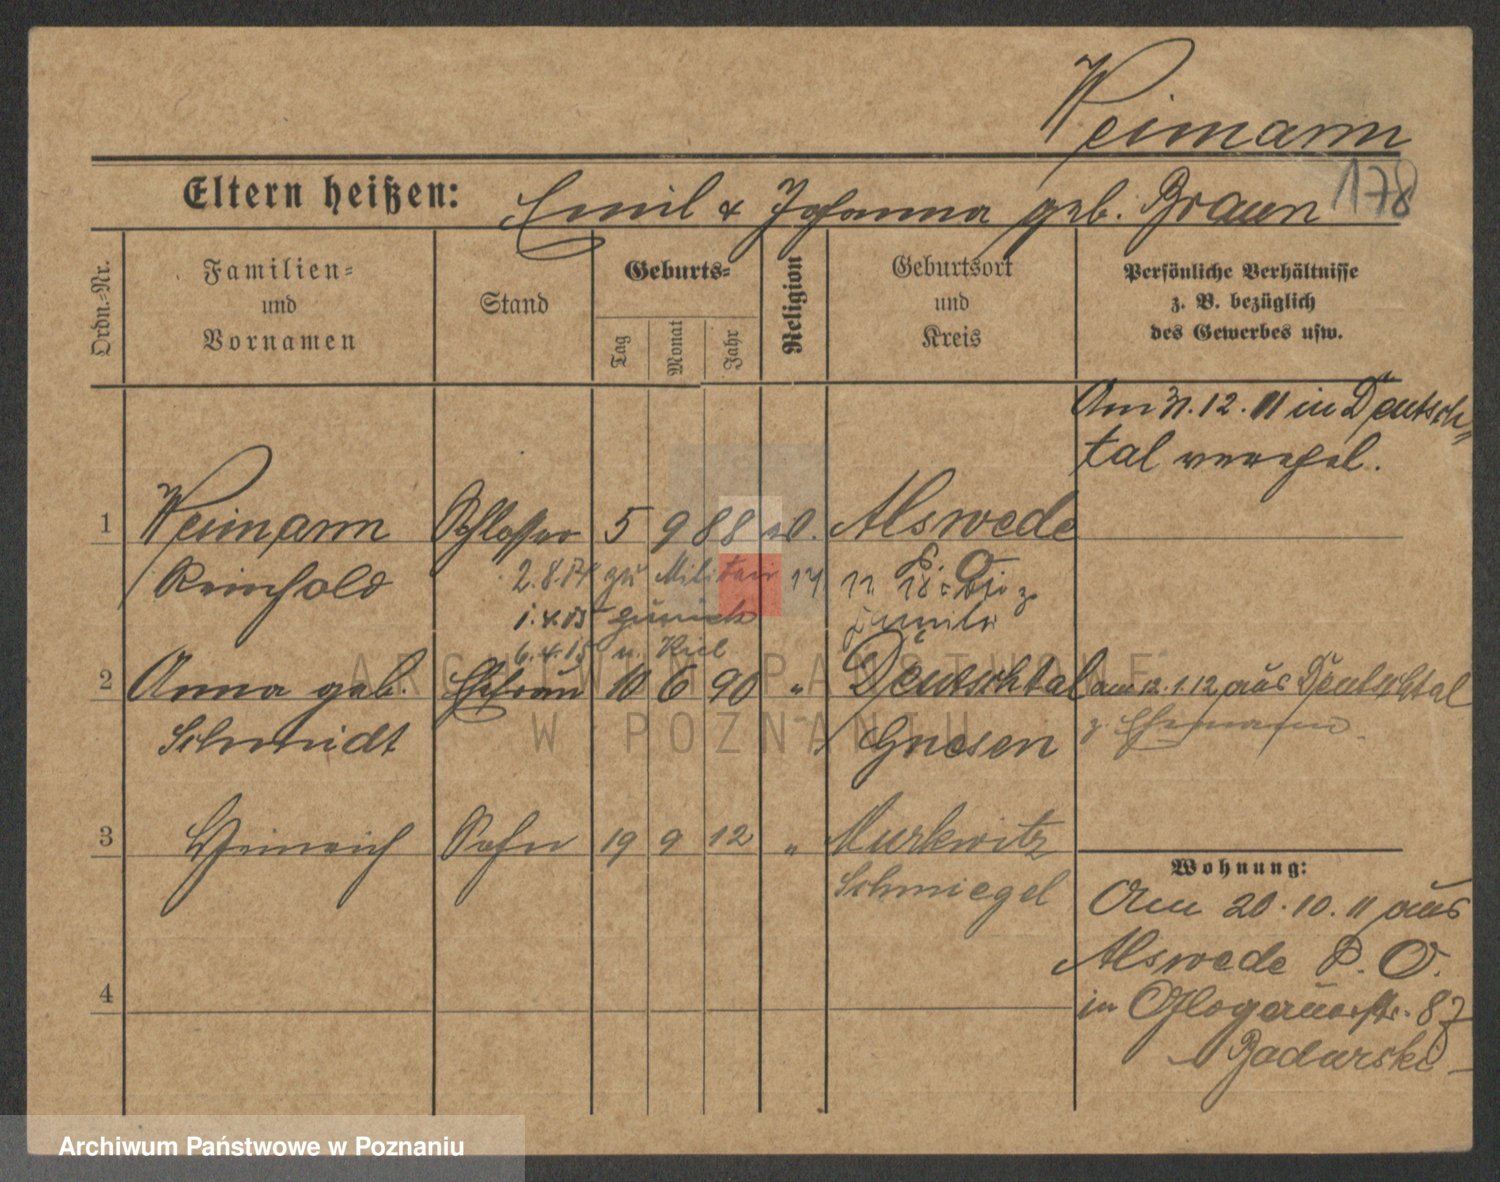 Weimann
178
Eltern heißen: Emil & Johanna geb. Braun
Ordn.-Nr.
Familien-
und
Vornamen
Stand
Geburts-
Tag
Monat
Jahr
Religion
Geburtsort
und
Kreis
Persönliche Verhältnisse
z. B. bezüglich
des Gewerbes usw.
Am 31.12.11 in Deutsch-
tal verehel.
1 Weimann Schlosser 5 9 88 Alswede
Reinhold
P. O.
2.8.14 zu Militair 17 11. 18
1.4.15 zurück Familie
6.4.15 n. Kiel
2 Anna geb. Ehefrau 10 6 90 " Deutschtal am 12.1.12 aus Deutschtal
Schmidt Gnesen z. Ehemann.
3 Heinrich Sohn 19 9 12 " Murkwitz
Schmiegel
4
Wohnung:
Am 20.10.11 aus
Alswede P. O.
in Glogauerstr. 87
Badurski
ARCHIWUM PAŃSTWOWE
W POZNANIU
Archiwum Państwowe w Poznaniu